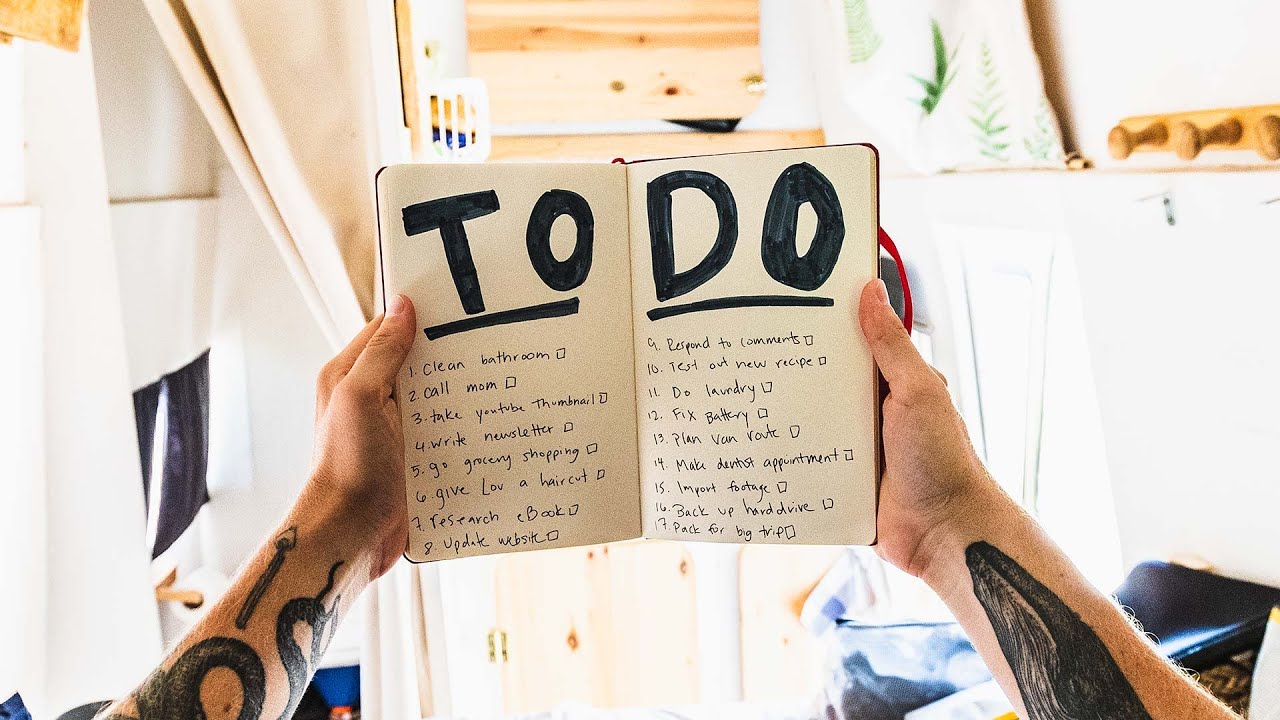 TO DO
1. Clean bathroom
2. Call mom
3. take youtube Thumbnail
4. write newsletter
5. go grocery shopping
6. give Lou a haircut
7. research eBook
8. update website
9. Respond to comments
10. Test out new recipe
11. Do laundry
12. Fix Battery
13. Plan van route
14. Make dentist appointment
15. Import footage
16. Back up hard drive
17. Pack for big trip